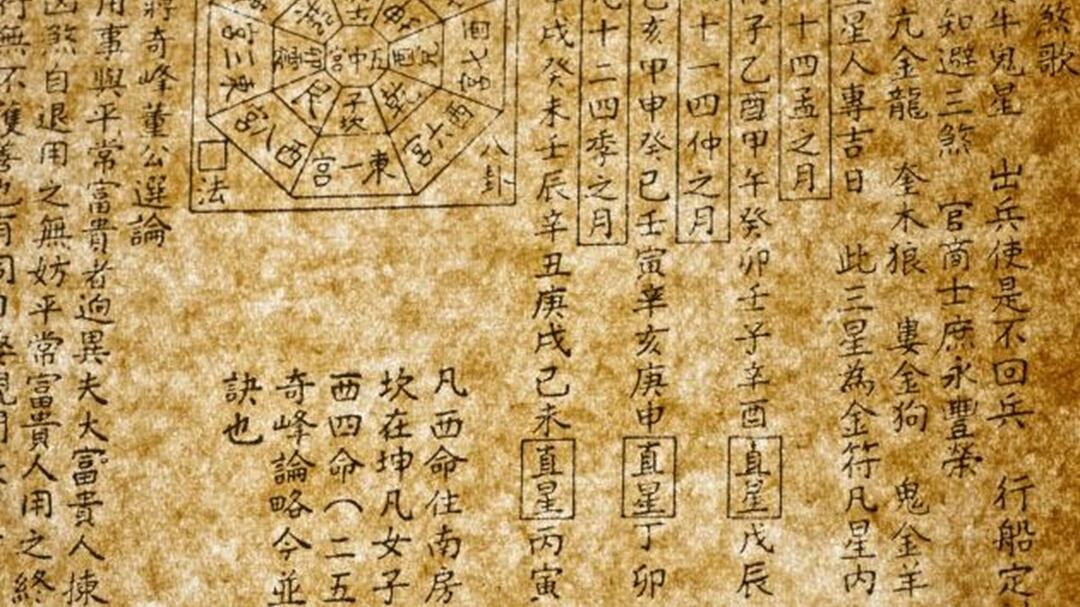 煞歌
牛鬼星 出兵使是不回兵 行船定
知避三煞 官商士庶永豐榮
亢金龍 奎木狼 婁金狗 鬼金羊
星人專吉日 此三星為金符凡星内
十四孟之月
子乙酉甲午癸卯壬子辛酉直星戊辰
十一四仲之月
亥甲申癸巳壬寅辛亥庚申直星丁卯
十二四季之月
戌癸未壬辰辛丑庚戌己未直星丙寅
八卦
西六宮
東一宮
西八宮
東三宮
七宮
中宮五
坎子
乾
兌
法
凡西命住南房
坎在坤凡女子
西四命（二五
奇峰論略今並
訣也
蔣奇峰董公選論
用事與平常富貴者逈異夫大富貴人揀
煞自退用之無妨平常富貴人用之終
無不獲善也有同